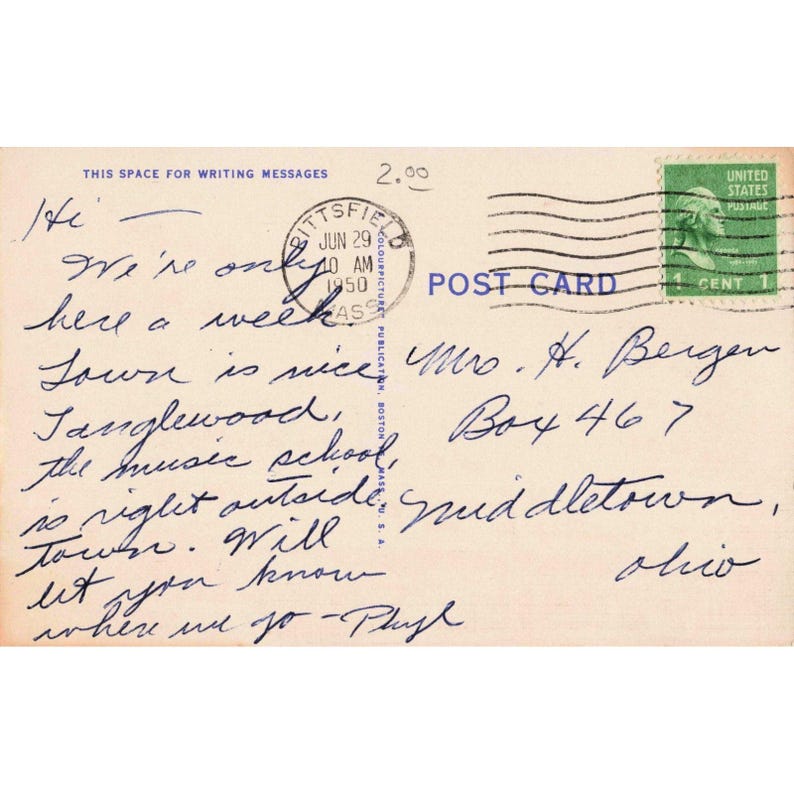 THIS SPACE FOR WRITING MESSAGES
2.00
Hi —
We're only
here a week.
Town is nice
Tanglewood,
the music school,
is right outside
town. Will
let you know
where we go - Phyl
PITTSFIELD
JUN 29
10 AM
1950
MASS.
COLOURPICTURE PUBLICATION, BOSTON, MASS., U.S.A.
POST CARD
UNITED
STATES
POSTAGE
1 CENT 1
Mrs. H. Bergen
Box 467
Middletown,
Ohio